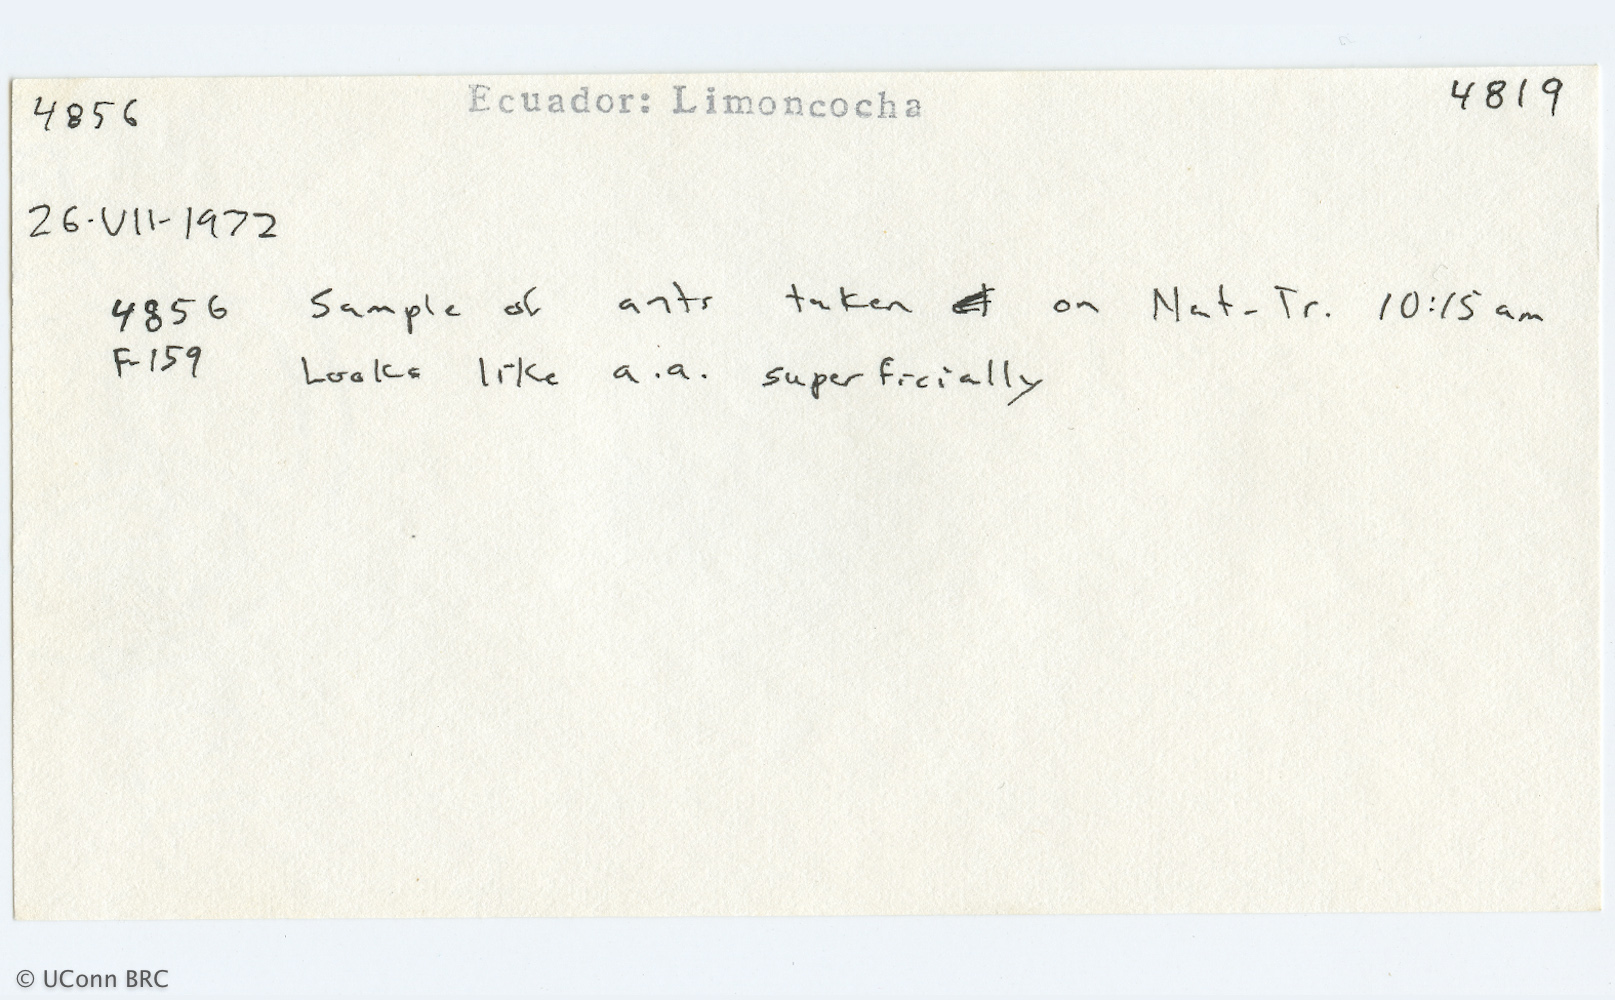 4856 Ecuador: Limoncocha 4819
26-VII-1972
4856 Sample of ants taken on Nat-Tr. 10:15 am
F-159 Looks like a.a. superficially
© UConn BRC